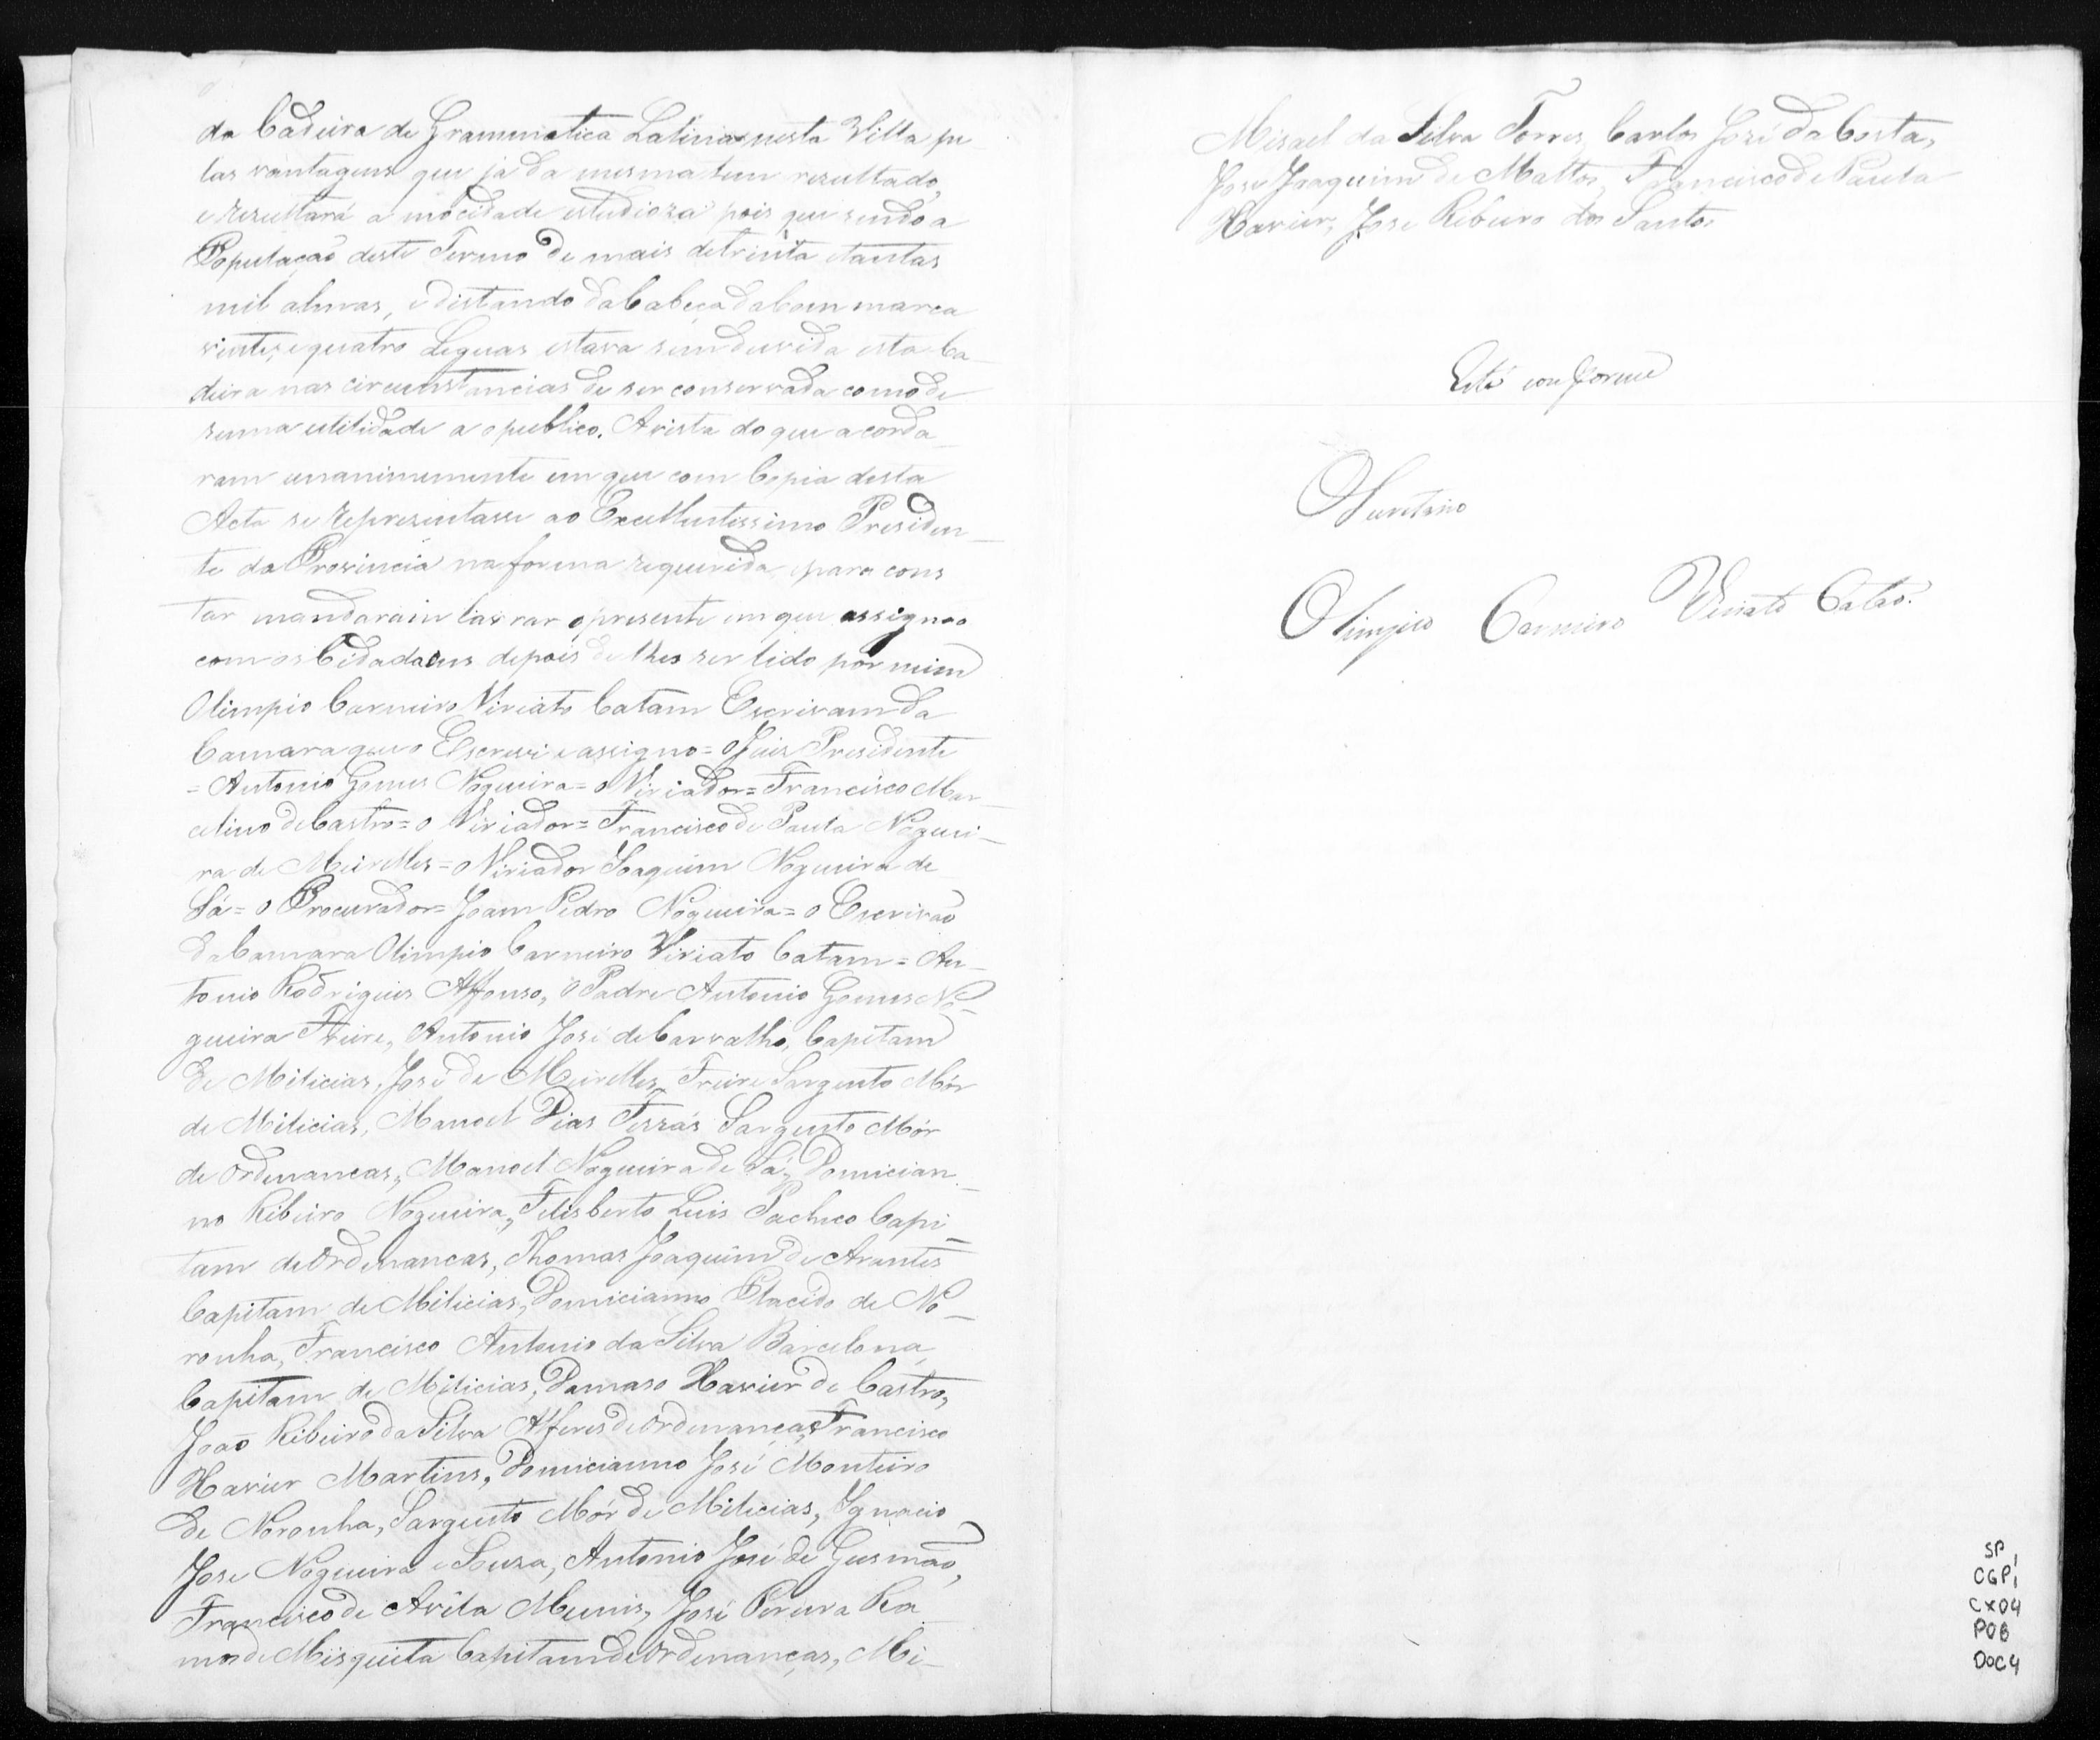 da Cadeira de Grammatica Latina nesta Villa pe
las vantagens que já da mesma tem rezultado,
e rezultará a mocidade estudioza pois que sendo a
Populaçaõ deste Termo de mais de trinta e tantas
mil almas, e distando da Cabeça da Commarca
vinte, e quatro Leguas estava sem duvida esta Ca_
deira nas circunstancias de ser conservada como de
summa utilidade a o publico. Avista do que acorda_
ram unanimemente em que com Copia desta
Acta se reprezentasse ao Excellentissimo Presiden_
te da Provincia na forma requerida, e para cons
tar mandaram lavrar o presente em que assignao
com os Cidadaens depois de lhes ser lido por mim
Olimpio Carneiro Viriato Catam Escrivam da
Camara que o Escrevi e assigno = O Juis Presidente
= Antonio Gomes Nogueira = o Viriador = Francisco Mar_
celino de Castro = o Viriador = Francisco de Paula Noguei_
ra de Meirelles = o Viriador Joaquim Nogueira de
Sá = o Procurador = Joam Pedro Nogueira = o Escrivaõ
da Camara Olimpio Carneiro Viriato Catam = An_
tonio Rodrigues Affonso, o Padre Antonio Gomes No_
gueira Freire, Antonio José de Carvalho, Capitam
de Milicias, José de Meirelles Freire Sargento Mór
de Milicias, Manoel Dias Ferrás Sargento Mór
de Ordenancas, Manoel Nogueira de Sá, Domician_
no Ribeiro Nogueira, Felisberto Luis Pacheco Capi_
tam de Ordenancas, Thomas Joaquim de Arantes
Capitam de Milicias, Domicianno Placido de No_
ronha, Francisco Antonio da Silva Barcelona,
Capitam de Milicias, Damaso Xavier de Castro,
Joaõ Ribeiro da Silva Alferes de Ordenanças, Francisco
Xavier Martins, Domicianno José Monteiro
de Noronha, Sargento Mór de Milicias, Ignacio
Jose Nogueira e Souza, Antonio José de Gusmaõ,
Francisco de Avila Munis, José Pereira Ra
mos de Misquita Capitam de Ordenanças, Mi_
Misael da Silva Torres, Carlos José da Costa,
Jose Joaquim de Mattos, Francisco de Paula
Xavier, Jose Ribeiro dos Santos
Está conforme
O Secretario
Olimpio Carneiro Viriato Cataõ.
SP1
CGP1
CX04
P06
DOC4